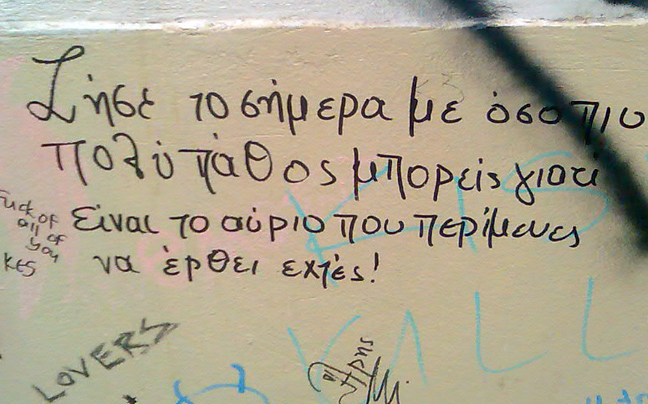 Ζήσε το σήμερα με όσο πιο
πολύ πάθος μπορείς γιατί
είναι το αύριο που περίμενες
να έρθει εχτές!
Fuck of
all of
you
KES
LOVERS
Άρης